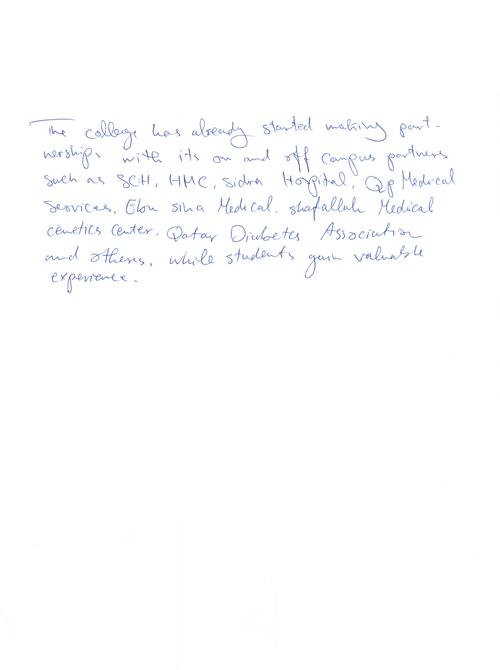 The college has already started making part-
nerships with its on and off campus partners
such as SCH, HMC, Sidra Hospital, Qp Medical
Services, Ebn sina Medical, shafallah Medical
cenetics center, Qatar Diabetes Association
and others, while students gain valuable
experience.